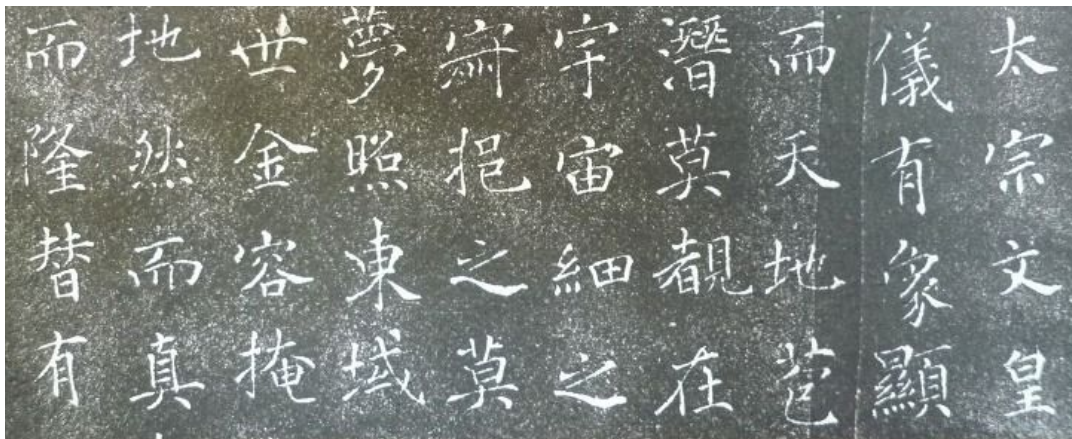 太宗文皇
儀有象顯
而天地苞
潛莫覩在
宇宙細之
寂挹之莫
夢照東域
世金容掩
地然而真
而隆替有